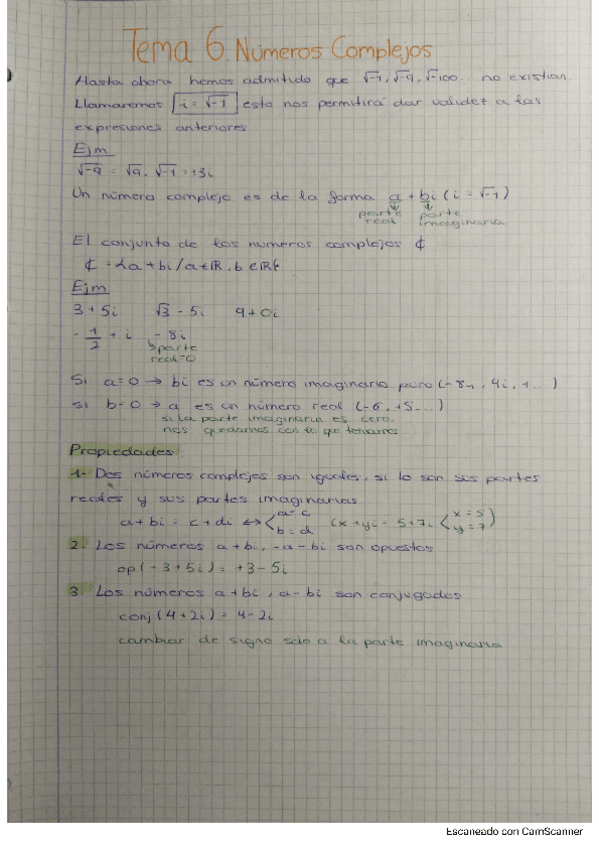 Tema 6. Números Complejos
Hasta ahora hemos admitido que √-1, √-9, √-100... no existían.
Llamaremos i = √-1 esto nos permitirá dar validez a las
expresiones anteriores
Ejm
√-9 = √9 · √-1 = +3i
Un número complejo es de la forma a + bi (i = √-1)
parte real
parte imaginaria
El conjunto de los numeros complejos ₵
₵ = {a + bi / a ∈ ℝ, b ∈ ℝ}
Ejm
3 + 5i √3 - 5i 9 + 0i
- 1/2 + i - 8i
parte
real = 0
Si a=0 → bi es un número imaginario puro
si b=0 → a es un número real (-6, +5...)
si la parte imaginaria es cero,
nos quedamos con lo que teníamos
Propiedades
1- Dos números complejos son iguales, si lo son sus partes
reales y sus partes imaginarias
a + bi = c + di ⟷ a=c b=d (x + yi = 5 + 7i x=5 y=7)
2. Los números a + bi, -a - bi son opuestos
op(-3+5i) = +3-5i
3. Los números a + bi, a - bi son conjugados
conj(4+2i) = 4-2i
cambiar de signo solo a la parte imaginaria
Escaneado con CamScanner